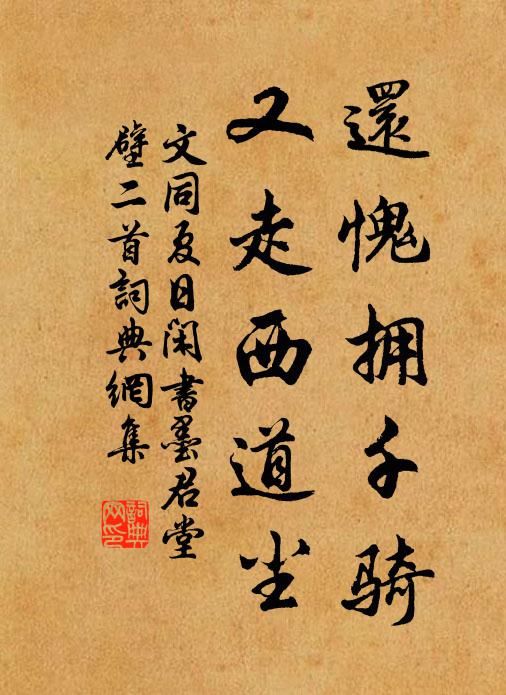 還愧拥千骑
又走西道尘
文同夏日闲書墨君堂
壁二首詞典網集
詞典
网印